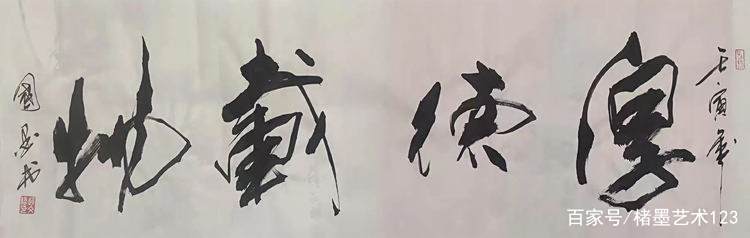 壬寅年
厚德載物
國 书
百家号/楮墨艺术123